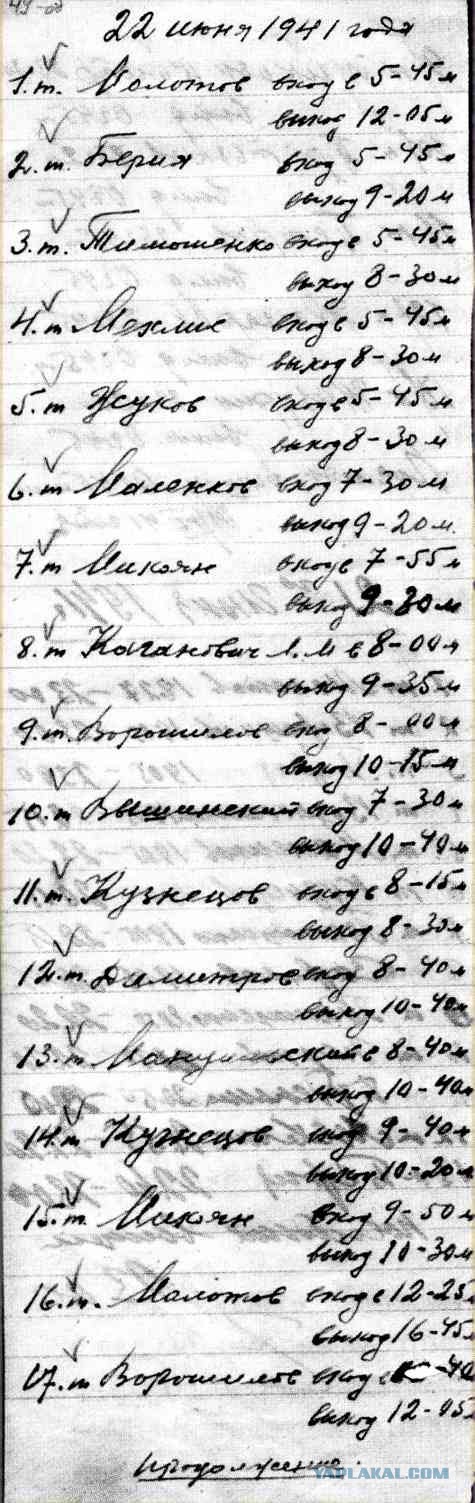 22 июня 1941 года
1. т. Молотов вход в 5-45м
выход 12-05м
2. т. Берия вход 5-45м
выход 9-20м
3. т. Тимошенко вход в 5-45м
выход 8-30м
4. т Мехлис вход в 5-45м
выход 8-30м
5. т Жуков вход в 5-45м
выход 8-30м
6. т Маленков вход 7-30м
выход 9-20м.
7. т Микоян вход в 7-55м
выход 9-30м
8. т Каганович Л. М в 8-00м
выход 9-35м
9. т. Ворошилов вход 8-00м
выход 10-15м
10. т Вышинский вход 7-30м
выход 10-40м
11. т. Кузнецов вход в 8-15м
выход 8-30м
12. т. Димитров вход 8-40м
выход 10-40м
13. т Мануильский в 8-40м
выход 10-40м
14. т Кузнецов вход 9-40м
выход 10-20м
15. т. Микоян вход 9-50м
выход 10-30м
16. т. Молотов вход в 12-25м
выход 16-45м
17. т Ворошилов вход в -40
выход 12-05
продолжение.
YAPLAKAL.COM